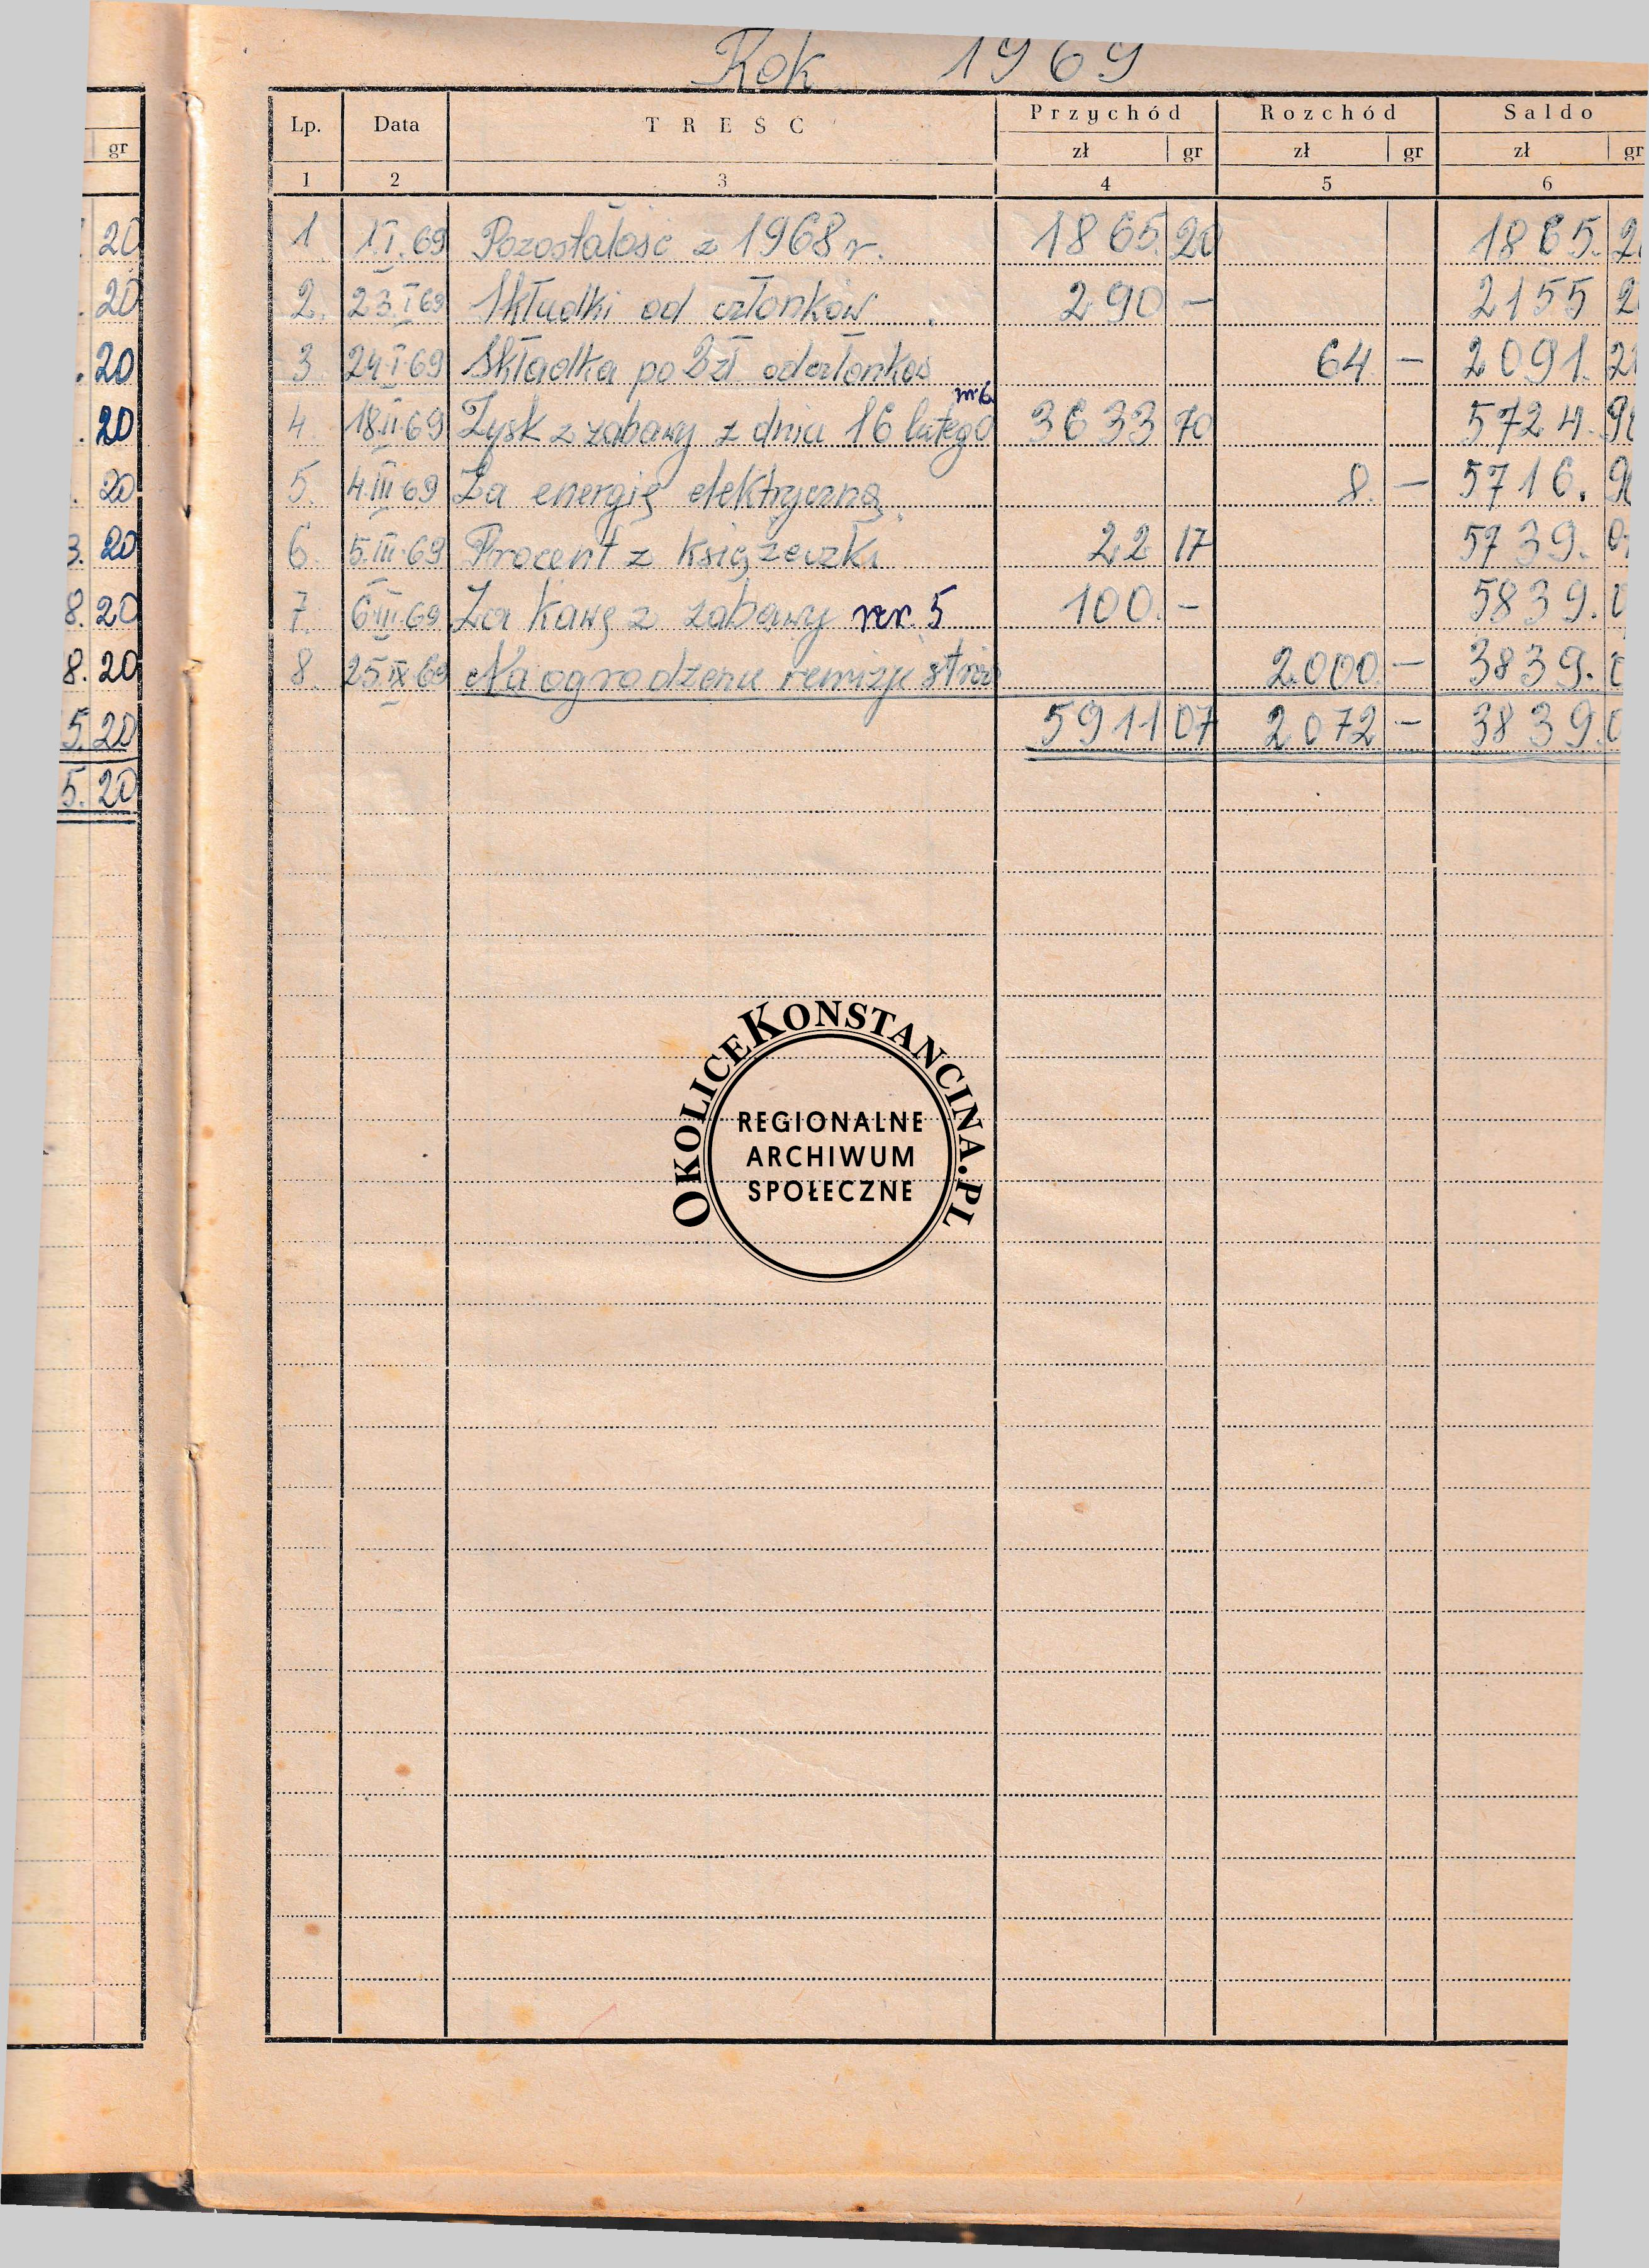 Rok 1969
Lp. Data TREŚĆ Przychód Rozchód Saldo
gr zł gr zł gr zł gr
1 2 3 4 5 6
20 1 1.I.69 Pozostałość z 1968 r. 1865. 20 1865. 2
20 2. 23.I 69 Składki od członków 290 - 2155 2
20 3 24.I.69 Składka po 2zł od członkos 64 - 2091. 2
nr 6
20 4. 18.II.69 Zysk z zabawy z dnia 16 lutego 3633 70 5724. 9
20 5. 4.III 69 Za energię elektryczną 8. - 5716. 9
3. 20 6. 5.III.69 Procent z książeczki 22 17 5739. 0
8. 20 7. 6.III.69 Za kawę z zabawy nr. 5 100. - 5839. 0
8. 20 8. 25.IX 69 Na ogrodzenie remizy 2.000. - 3839. 0
5. 20 5911 07 2072 - 3839. 0
5. 20
OKOLICEKONSTANCINA.PL
REGIONALNE
ARCHIWUM
SPOŁECZNE